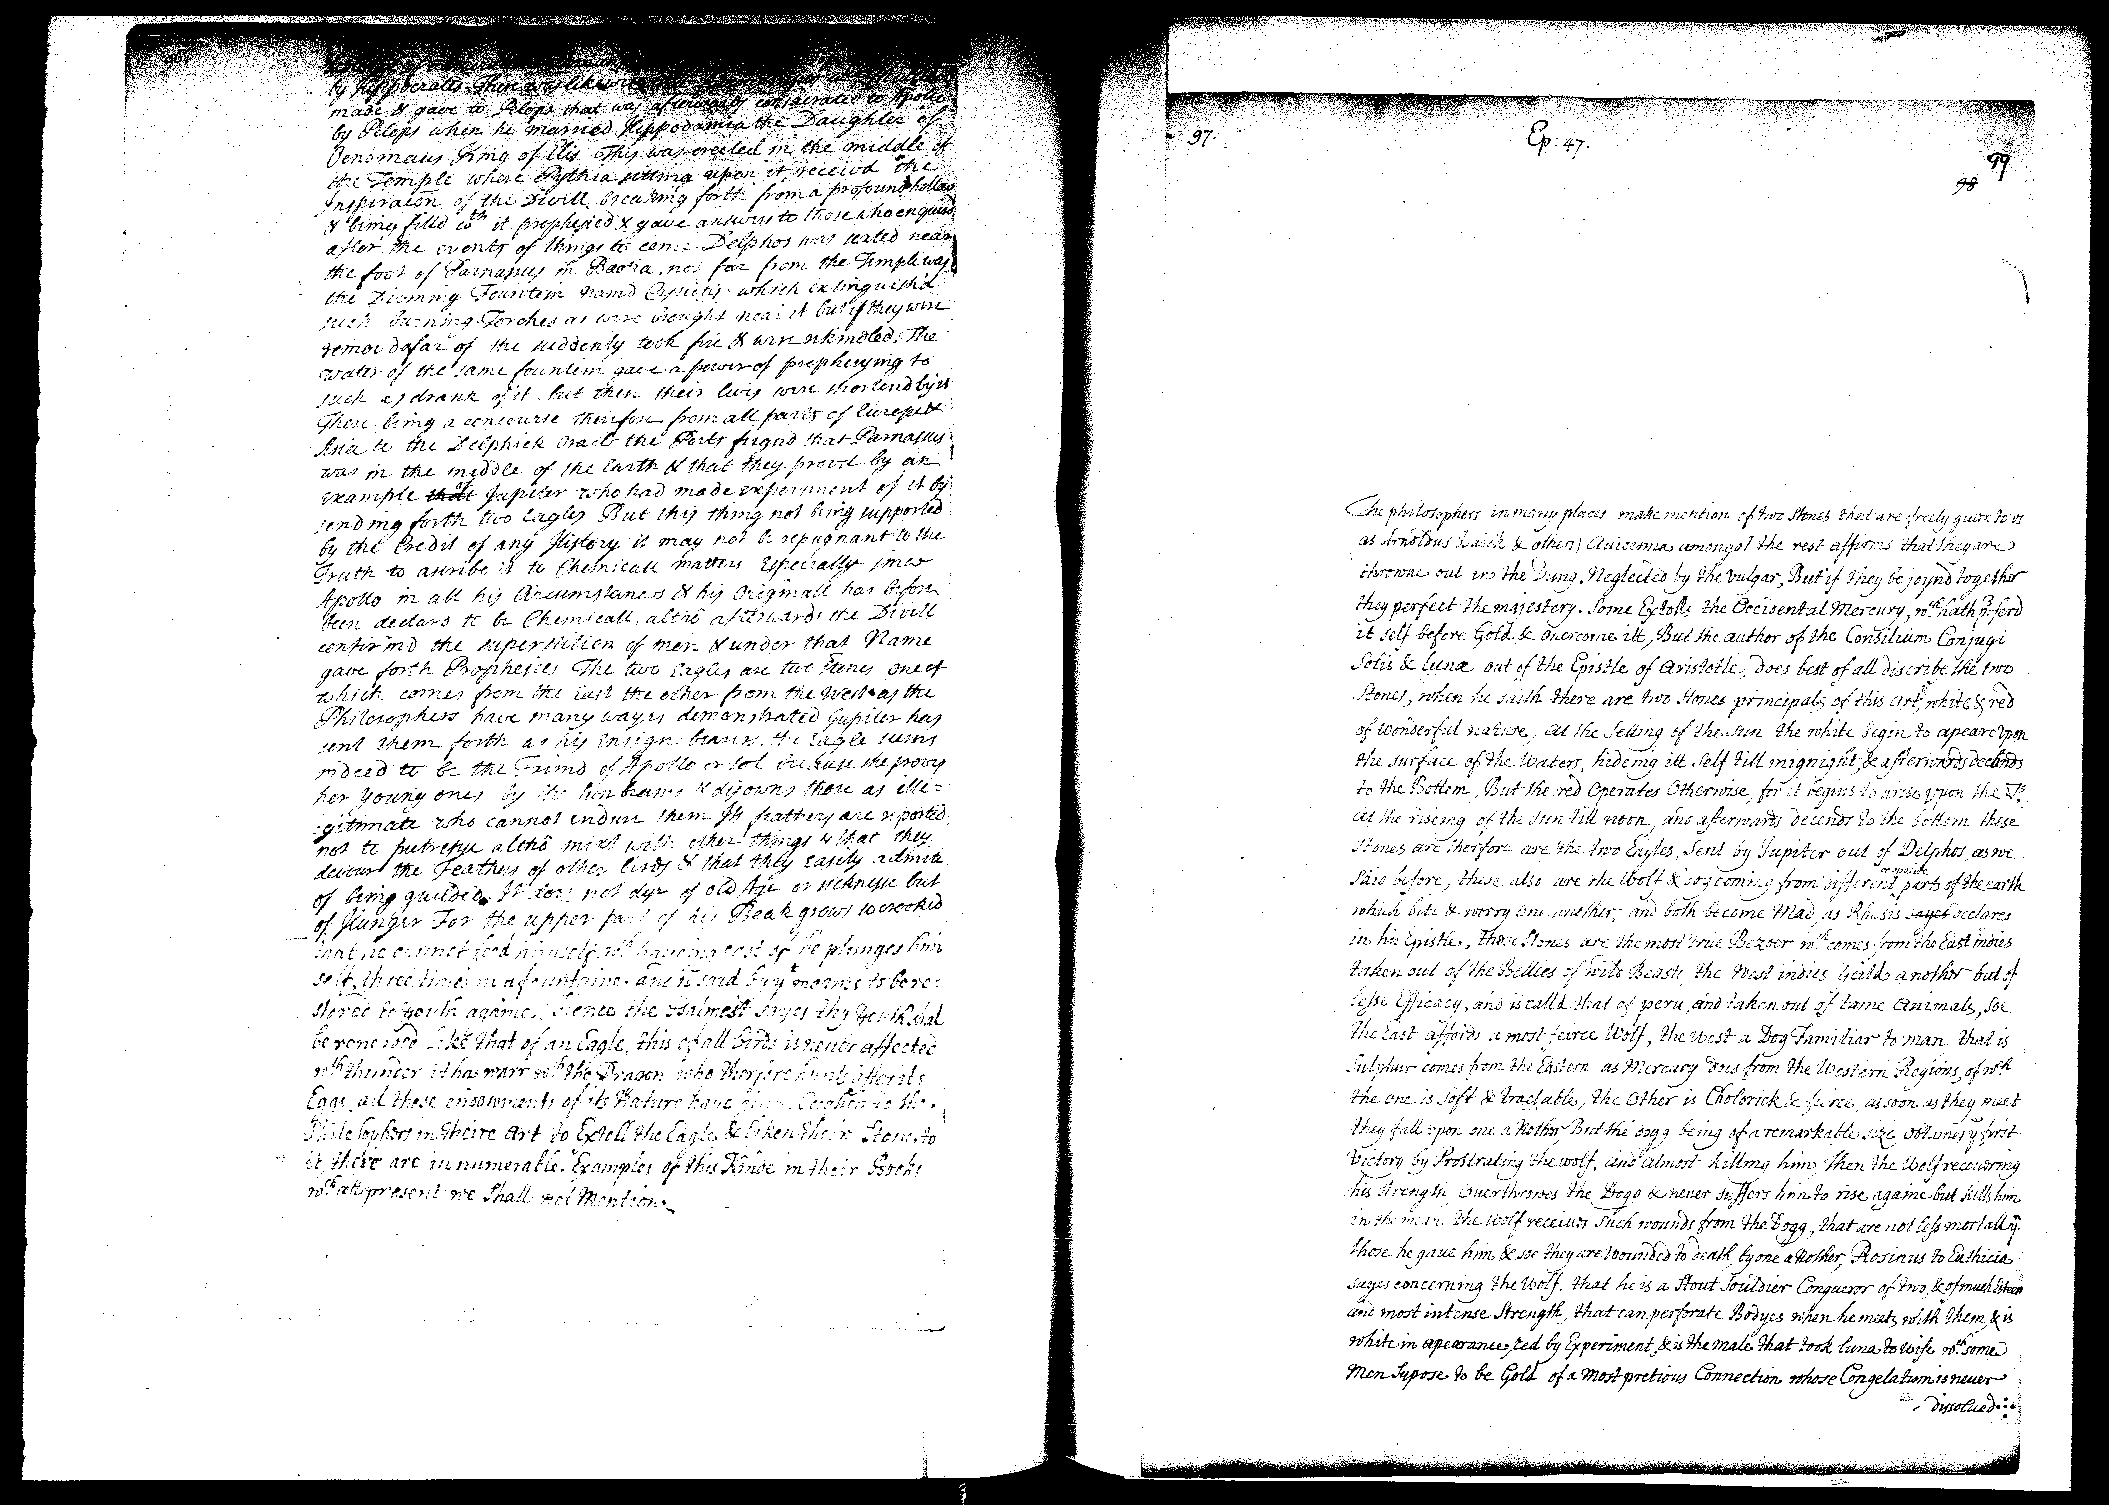 by Hippocrates There was likewise
made & gave to Pelops that was afterwards consecrated to Apollo
by Pelops when he married Hippodamia the Daughter of
Oenomaus King of Elis This was erected in the middle of
the Temple where Pythia sitting upon it receivd the
Inspiraton of the Divill breaking forth from a profound hollow
& being filld wth it prophesied & gave answers to those who enquird
after the events of things to come Delphos was seated near
the foot of Parnassus in Baotia. not far from the Temple was
the Divining Fountein namd which extinguish'd
such burning Torches as were brought near it but if they were
remov'd afar of the suddenly took fire & were rekindled. The
water of the same fountein gave a power of prophecying to
such as drank of it but then their lives were shortend by it
There being a concourse therefore from all parts of Europe &
Asia to the Delphick Oracle the Poets feignd that Parnassus
was in the middle of the Earth & that they provd by an
example that of Jupiter who had made experiment of it by
sending forth two Eagles But this thing not being supported
by the Credit of any History it may not be repugnant to the
Truth to ascribe it to Chemicall matters Especially since
Apollo in all his Circumstances & his Originall has before
been declard to be Chemicall, altho afterwards the Divill
confirmd the superstition of men & under that Name
gave forth Prophesies The two Eagles are two stones one of
which comes from the East the other from the West as the
Philosophers have many wayes demonstrated Jupiter has
sent them forth as his ensign bearers. The Eagle seems
indeed to be the Friend of Apollo or Sol because she proves
her young ones by the Sun beams & disowns those as ille=
gitimate who cannot endure them Its feathers are reported
not to putrefye altho mixt with other things & that they
devour the Feathers of other birds & that they easily admitt
of being guilded. It does not dye of old Age or sicknesse but
of Hunger For the upper part of his Beak grows so crooked
that he cannot feed himself, wch having cast of he plunges him
self three times in a fountaine and is said by yt means to be re=
stored to youth againe, Hence the Psalmest sayes thy youth shal
be renewed like that of an Eagle, this of all birds is never affected
wth thunder it has warr wth the Dragon who therfore hunts after its
Eggs, all these endowments of its Nature have given Occasion to the
Philosophers in theire art to Extoll the Eagle & liken their Stone to
it, there are innumerable Examples of this Kinde in their Books
wch att present we shall not Mention.
97. Ep: 47.
99
98
The philosophers in many places make mention of two Stones that are freely given to us
as Arnoldus saith & others, Avicenna amongst the rest affirms that they are
throwne out in the Dung, Neglected by the vulgar, But if they be joynd together
they perfect the majestery. Some Extolls the Occidental Mercury, wch hath pferd
it self before Gold & overcome itt, But the author of the Consilium Conjugi
Solis & Lunæ out of the Epistle of Aristotle, does best of all discribe the two
Stones, when he saith there are two stones principals of this art, white & red
of wonderful nature, at the Setting of the sun the white begin to apeare upon
the surface of the Waters, hideing itt self till mignight, & afterwards decends
to the Bottom, But the red Operates Otherwise, for it begins to arise upon the
at the riseing of the sun till noon, and afterwards decends to the bottom these
stones are therfore are the two Eagles, Sent by Jupiter out of Delphos, as we
said before, these also are the Wolf & dog coming from different opposite parts of the earth
which bite & worry one another, and both become Mad, as Rhasis sayes declares
in his Epistle, those stones are the most true Bezoer wch comes from the East indies
taken out of the Bellies of wild Beasts, the west indies Yeilds another but of
lesse Efficacy, and is calld that of peru, and taken out of tame animals, soe
the East affords a most feirce Wolf, the west a Dog Familiar to man that is
Sulphur comes from the Eastern as Mercury dous from the Western Regions, of wch
the one is soft & tractable, the Other is Cholorick & feirce, as soon as they meet
they fall upon one another But the dogg being of a remarkable size obtaines ye first
Victory by Prostrating the wolf, and almost killing him, Then the Wolf recovering
his strength, overthrowes the Dogg & never suffers him to rise againe but kills him
in the mean the Wolf receives such wounds from the Dogg, that are not less mortall yn
those he gave him & soe they are wounded to death by one another, Rosinus to Euthicia
sayes concerning the Wolf. that he is a Stout Souldier Conqueror of two, & of much Esteem
and most intense Strength, that can perforate Bodyes when he meets with them, & is
white in apearance, red by Experiment, & is the male that took luna to wife wch some
Men Supose to be Gold of a most pretious Connection whose Congelatum is never
dissolued